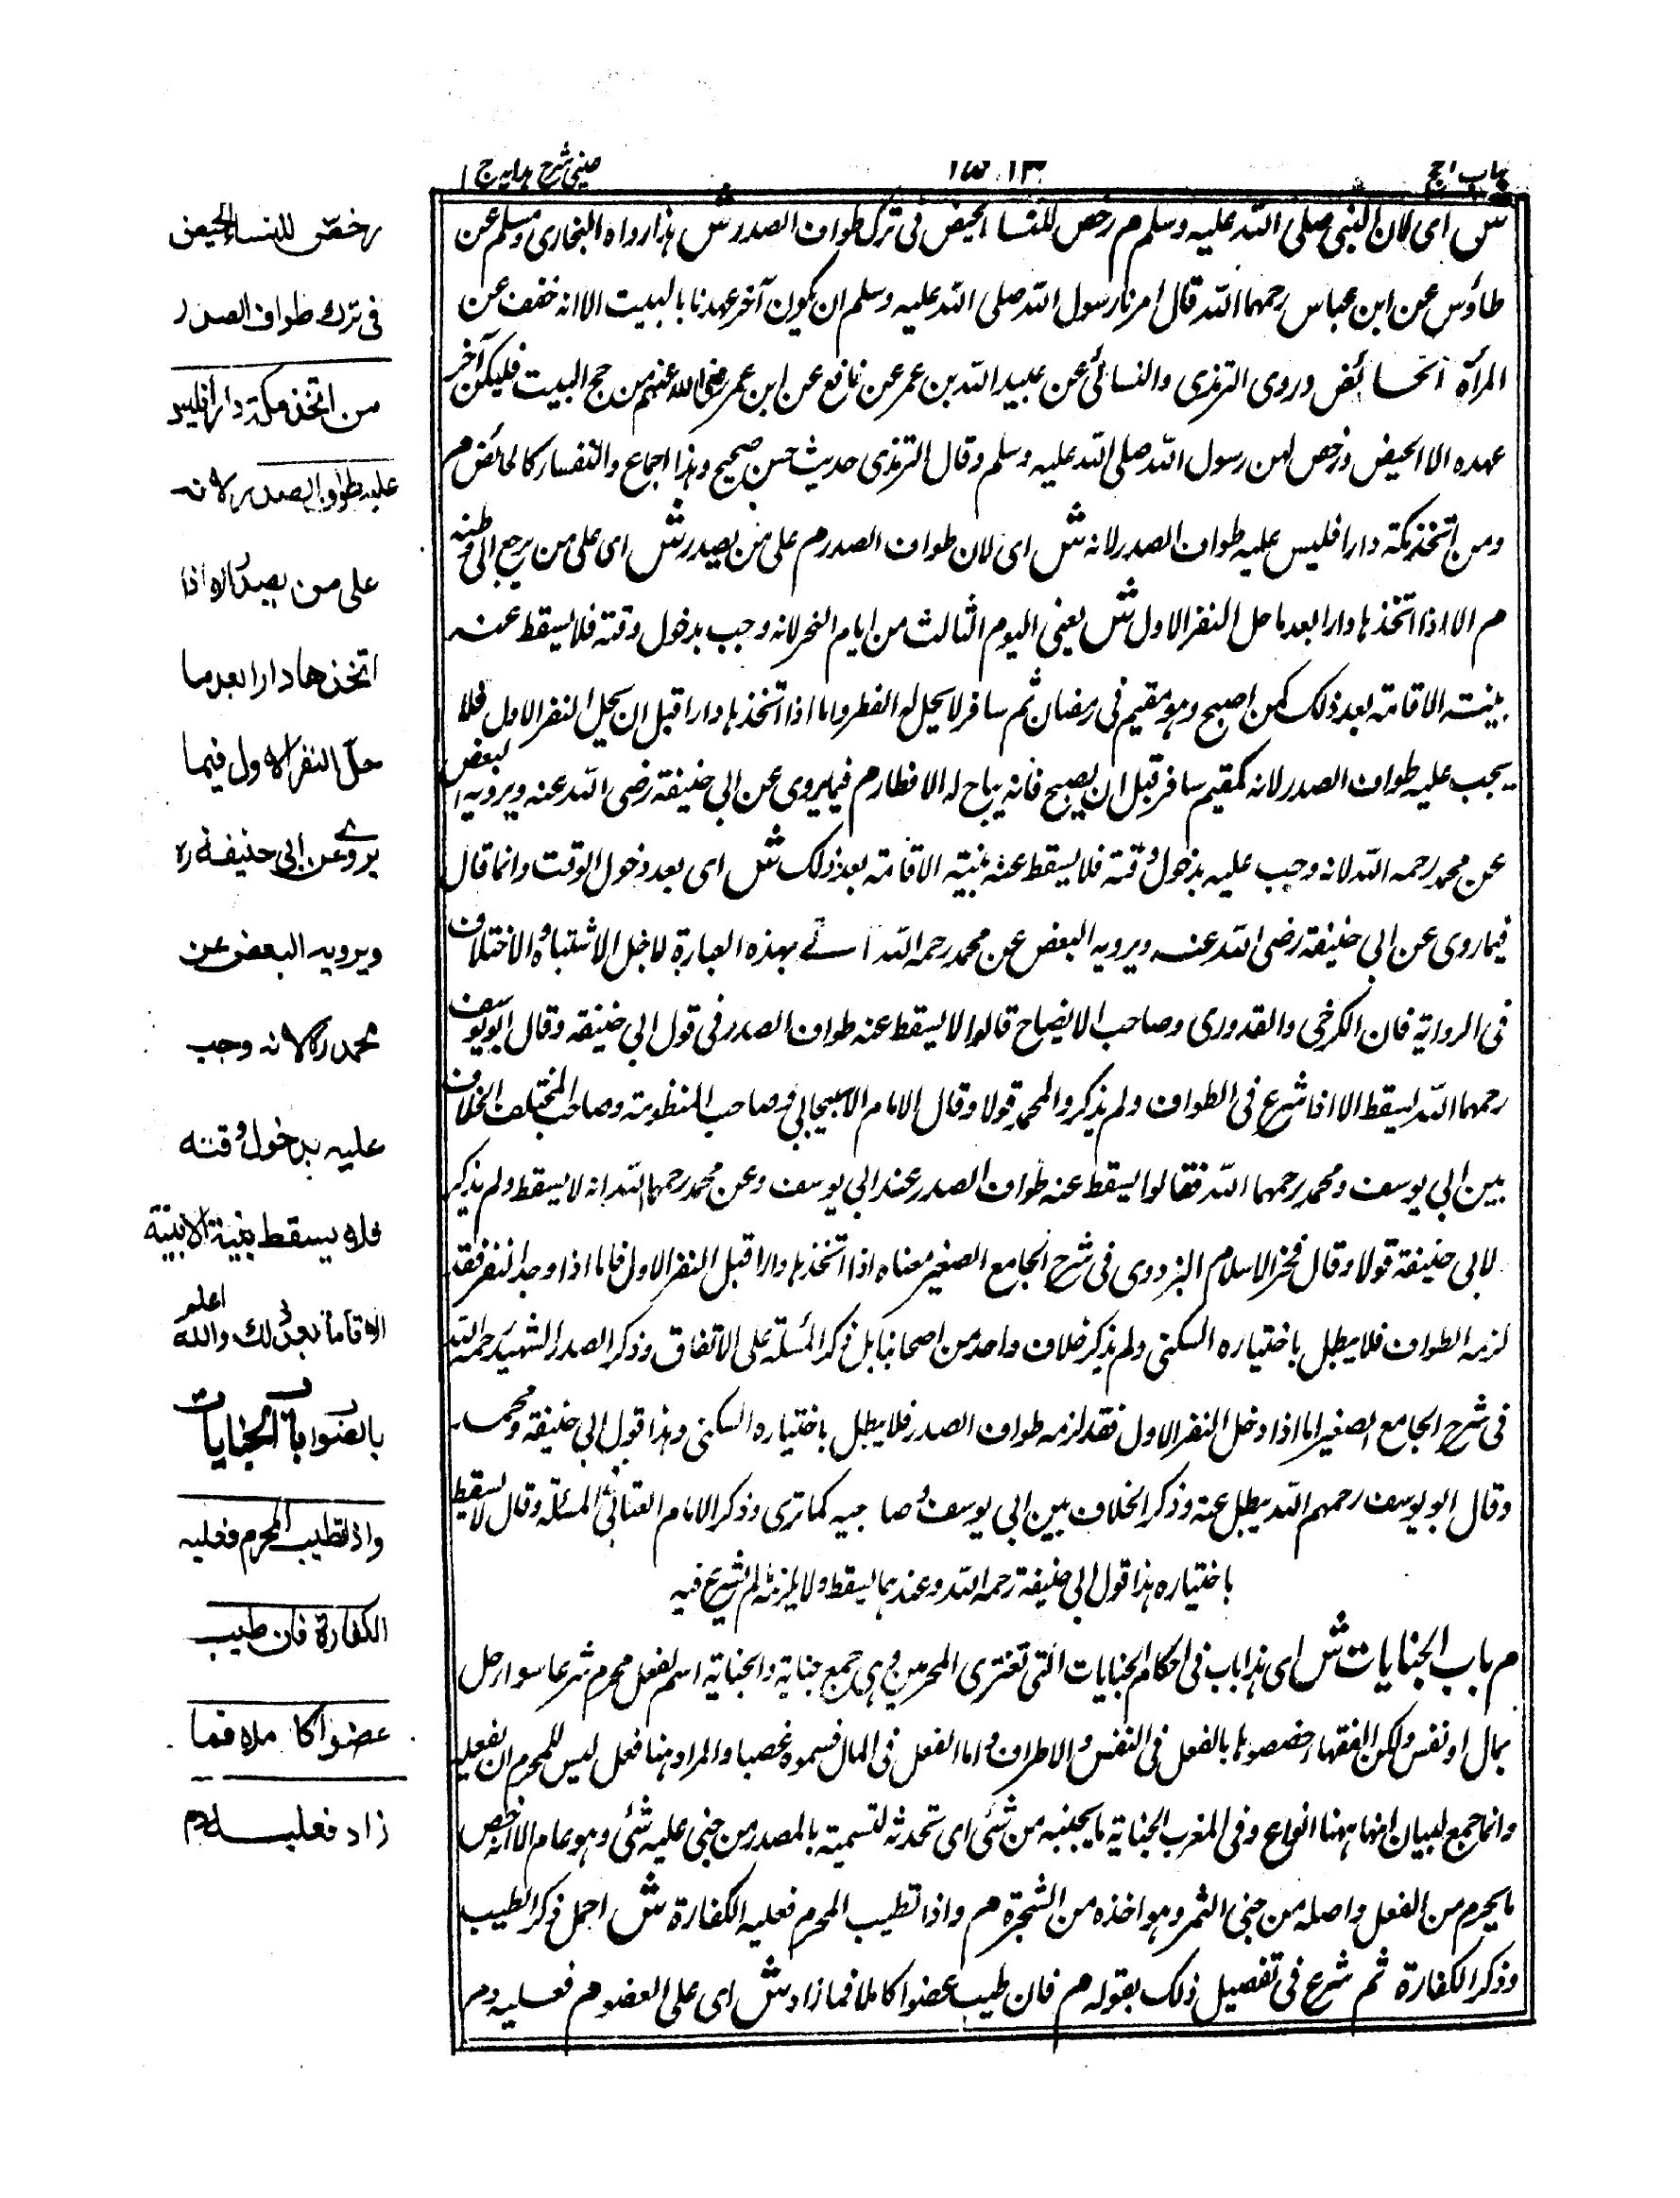 باب الحج
١٥١٣
عینی شرح ہدایہ ج ١
ش ای لان النبی صلی اللہ علیہ وسلم م رخص للنساء الحیض فی ترک طواف الصدر ش ہذا رواہ البخاری ومسلم عن
طاؤس عن ابن عباس رحمہما اللہ قال امرنا رسول اللہ صلی اللہ علیہ وسلم ان یکون آخر عہدنا بالبیت الا انہ خفف عن
المرأۃ الحائض وروی الترمذی والنسائی عن عبید اللہ بن عمر عن نافع عن ابن عمر رضی اللہ عنہم من حج البیت فلیکن آخر
عہدہ الا الحیض ورخص لہن رسول اللہ صلی اللہ علیہ وسلم وقال الترمذی حدیث حسن صحیح وہذا اجماع والنفساء کالحائض م
ومن اتخذ مکۃ دارا فلیس علیہ طواف الصدر لانہ ش ای لان طواف الصدر م علی من یصدر ش ای علی من یرجع الی وطنہ
م الا اذا اتخذہا دارا بعد ما حل النفر الاول ش یعنی الیوم الثالث من ایام النحر لانہ وجب بدخول وقتہ فلا یسقط عنہ
بنیۃ الاقامۃ بعد ذلک کمن اصبح وہو مقیم فی رمضان ثم سافر لا یحل لہ الفطر واما اذا اتخذہا دارا قبل ان یحل النفر الاول فلا
یجب علیہ طواف الصدر لانہ کمقیم سافر قبل ان یصبح فانہ یباح لہ الافطار م فیما یروی عن ابی حنیفۃ رضی اللہ عنہ ویرویہ البعض
عن محمد رحمہ اللہ لانہ وجب علیہ بدخول وقتہ فلا یسقط عنہ بنیۃ الاقامۃ بعد ذلک ش ای بعد دخول الوقت وانما قال
فیما روی عن ابی حنیفۃ رضی اللہ عنہ ویرویہ البعض عن محمد رحمہ اللہ بہذہ العبارۃ لاجل الاشتباہ والاختلاف
فی الروایۃ فان الکرخی والقدوری وصاحب الایضاح قالوا لا یسقط عنہ طواف الصدر فی قول ابی حنیفہ وقال ابو یوسف
رحمہما اللہ یسقط الا اذا شرع فی الطواف ولم یذکروا لمحمد قولا وقال الامام الاسبیجابی وصاحب المنظومۃ وصاحب المختلف الخلاف
بین ابی یوسف ومحمد رحمہما اللہ فقالوا یسقط عنہ طواف الصدر عند ابی یوسف وعن محمد رحمہما اللہ انہ لا یسقط ولم یذکر
لابی حنیفۃ قولا وقال فخر الاسلام البزدوی فی شرح الجامع الصغیر معناہ اذا اتخذہا دارا قبل النفر الاول فاما اذا وجد النفر فقد
لزمہ الطواف فلا یبطل باختیارہ السکنی ولم یذکر خلاف واحد من اصحابنا بل ذکر المسئلۃ علی الاتفاق وذکر الصدر الشہید رحمہ اللہ
فی شرح الجامع الصغیر اما اذا دخل النفر الاول فقد لزمہ طواف الصدر فلا یبطل باختیارہ السکنی وہذا قول ابی حنیفۃ ومحمد
وقال ابو یوسف رحمہم اللہ یبطل عنہ وذکر الخلاف بین ابی یوسف وصاحبیہ کما تری وذکر الامام العتابی المسئلۃ وقال لا یسقط
باختیارہ ہذا قول ابی حنیفۃ رحمہ اللہ وعندہما یسقط ولا یلزمہ لم یشرع فیہ
م باب الجنایات ش ای ہذا باب فی احکام الجنایات التی تعتری المحرمین وہی جمع جنایۃ والجنایۃ اسم لفعل محرم شرعا سواء حل
بمال او نفس ولکن الفقہاء خصصوہا بالفعل فی النفس والاطراف واما الفعل فی المال فسموہ غصبا والمراد ہنا فعل لیس للمحرم ان یفعلہ
وانما جمع لبیان انہا ہہنا انواع وفی المغرب الجنایۃ ما یجنیہ من شئی ای تحدثہ تسمیۃ بالمصدر من جنی علیہ شئی وہو عام الا انہ خص
ما یحرم من الفعل واصلہ من جنی الثمر وہو اخذہ من الشجرۃ م واذا تطیب المحرم فعلیہ الکفارۃ ش اجمل ذکر الطیب
وذکر الکفارۃ ثم شرع فی تفصیل ذلک بقولہ م فان طیب عضوا کاملا فما زاد ش ای علی العضو م فعلیہ دم
رخص للنساء الحیض
فی ترک طواف الصدر
من اتخذ مکۃ دارا فلیس
علیہ طواف الصدر لانہ
علی من یصدر الا اذا
اتخذہا دارا بعد ما
حل النفر الاول فیما
یروی عن ابی حنیفۃ رہ
ویرویہ البعض عن
محمد رح لانہ وجب
علیہ بدخول وقتہ
فلا یسقط بنیۃ
الاقامۃ بعد ذلک واللہ اعلم
بالصواب باب الجنایات
واذا تطیب المحرم فعلیہ
الکفارۃ فان طیب
عضوا کاملا فما
زاد فعلیہ دم